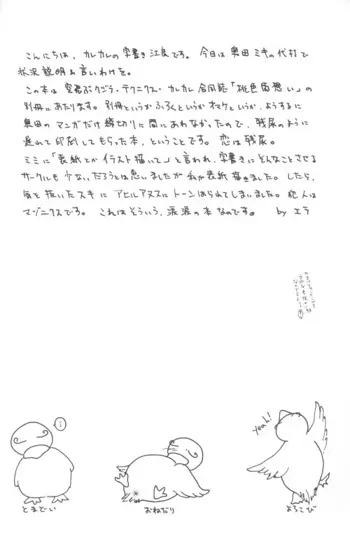 こんにちは、カレカレの字書き江良です。今日は奥田ミキの代打で
状況説明&言いわけを。
この本は 合同誌「桃色
別冊にあたります。別冊というか ふろくというか オマケというか、ようするに
奥田の マンガだけ 締切りに間にあわなかったので、残尿のように
遅れて印刷してもらった本、ということです。 恋は残尿。
ミミに「表紙とか イラスト描いて」と言われ、字書きにどんなことさせる
サークルも少ないだろうとは思いましたが 私が表紙描きました。したら、
気を抜いたスキに アヒルアヌスにトーンはられてしまいました。犯人は
マゾニクスです。 これはそういう、涙涙の本なのです。 by エラ
yeah!
とまどい
おねだり
よろこび